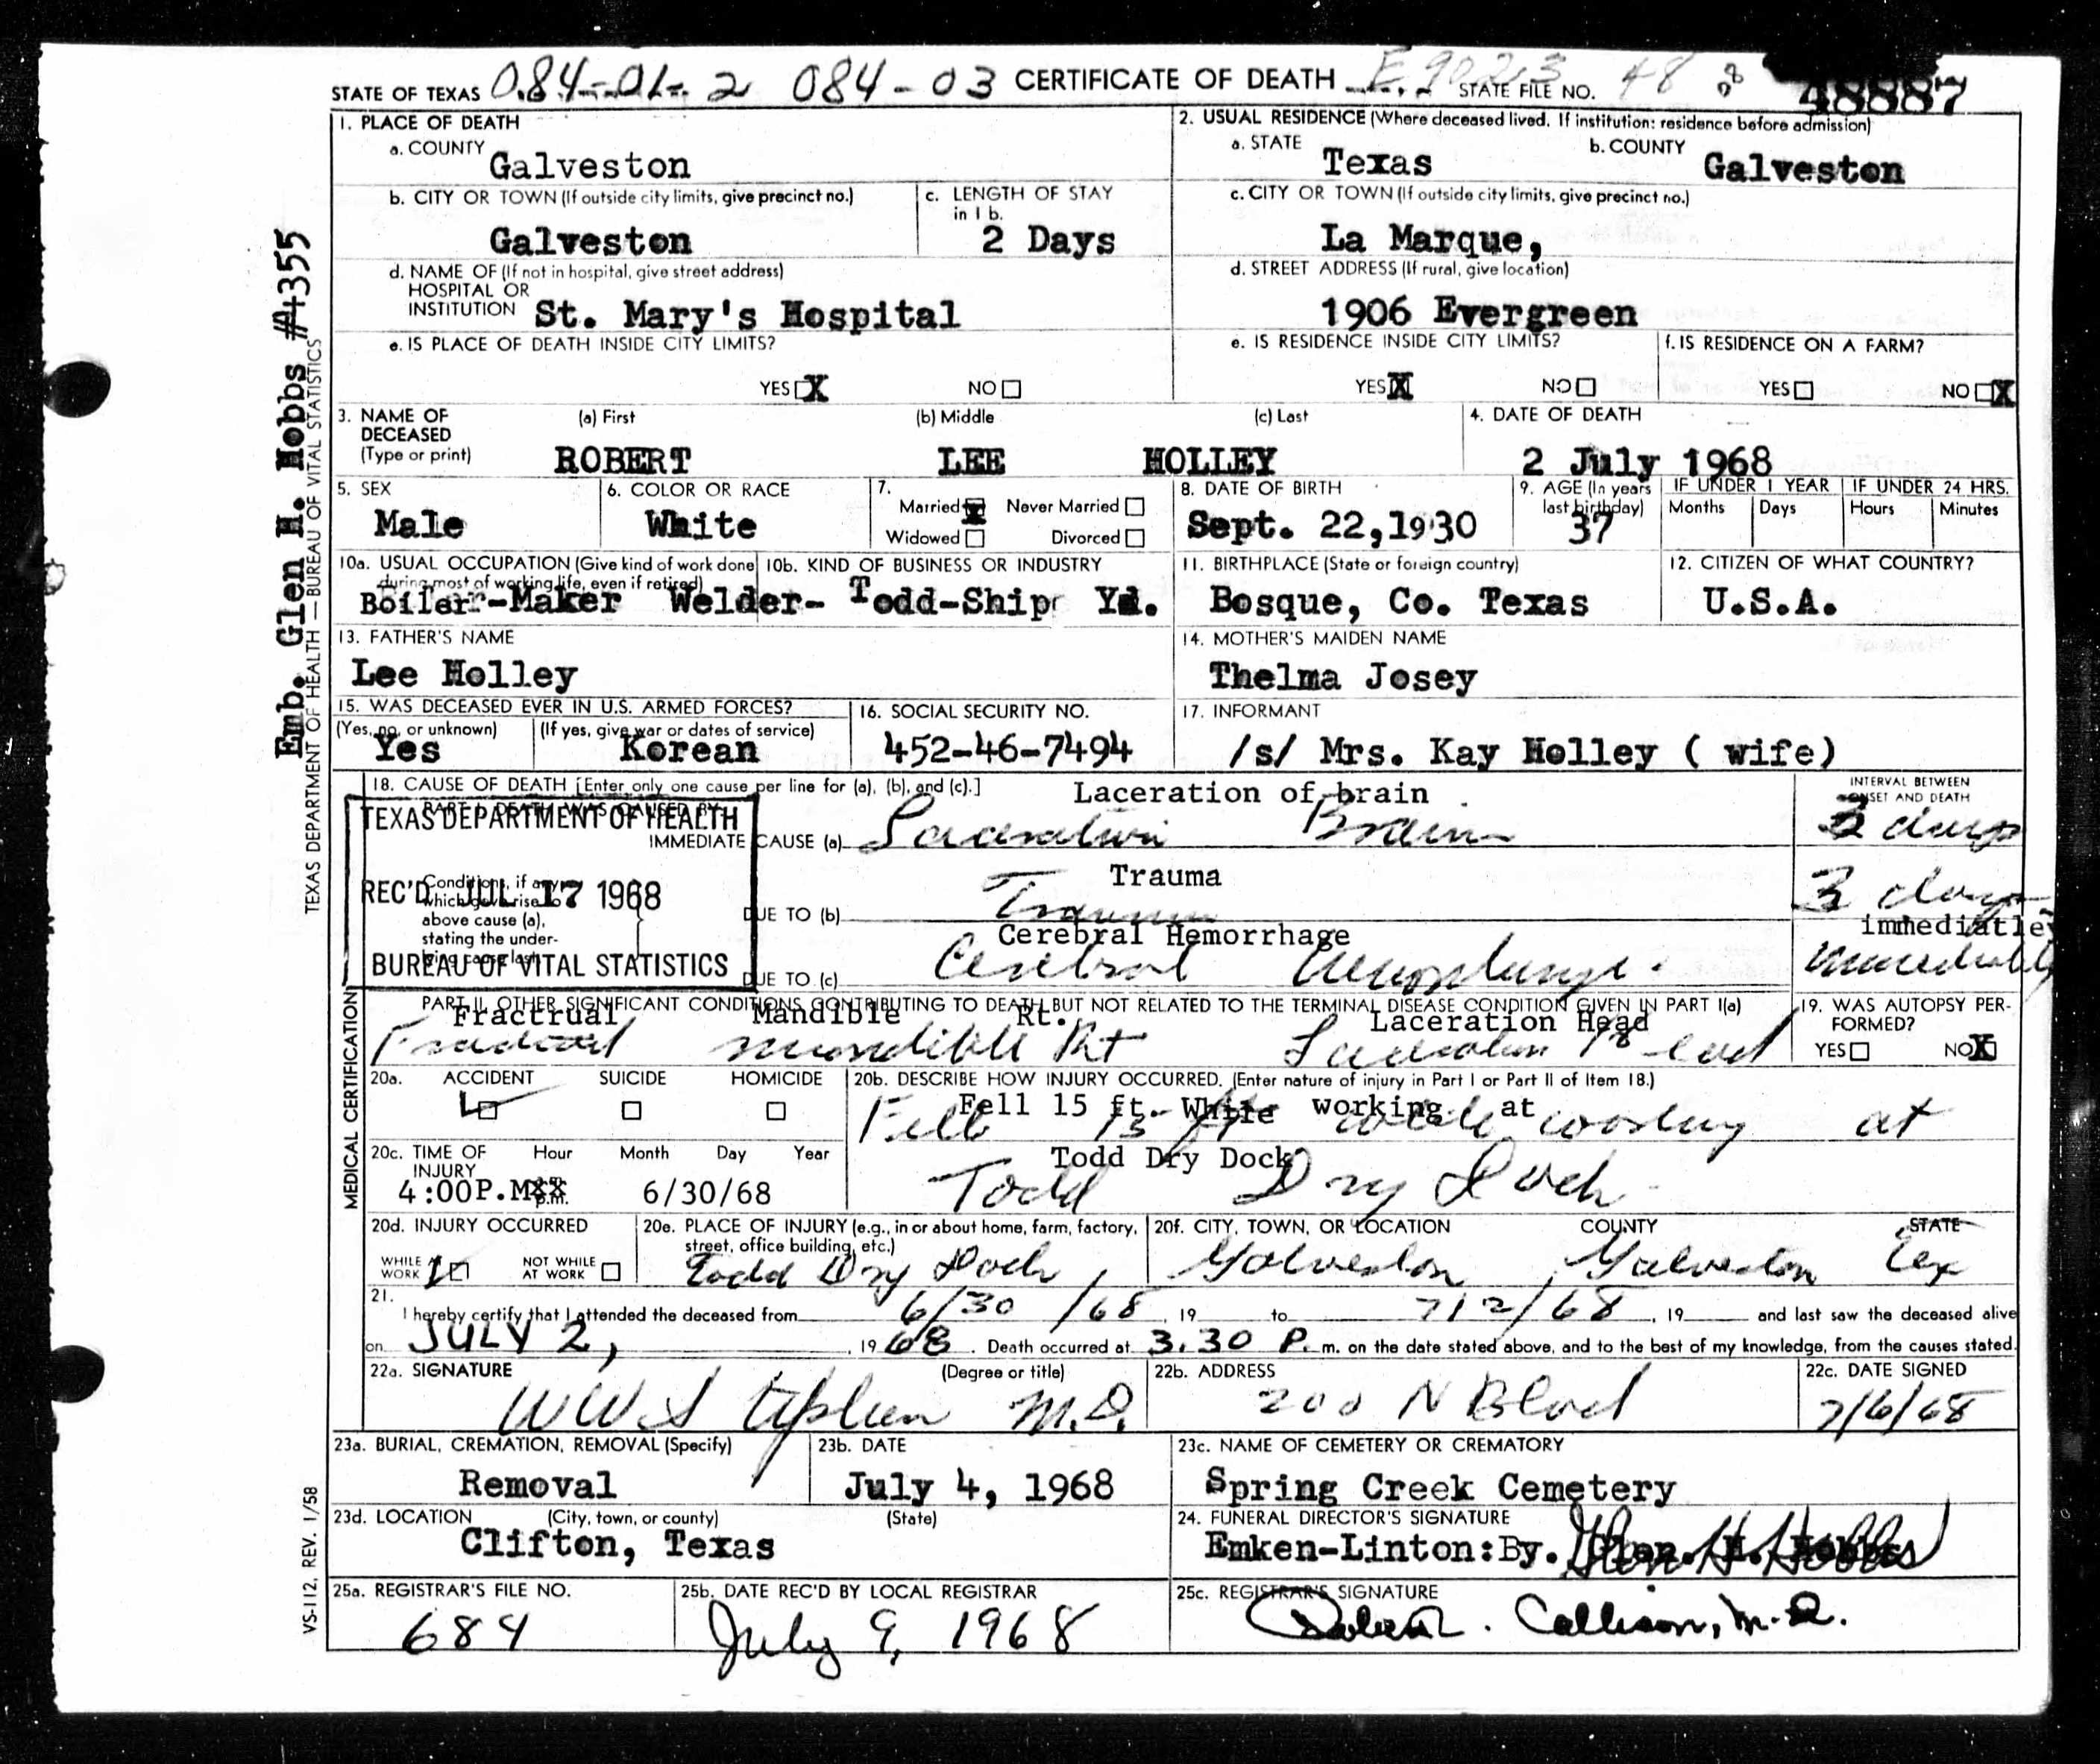 STATE OF TEXAS 084-01-2 084-03 CERTIFICATE OF DEATH STATE FILE NO. 48887
1. PLACE OF DEATH
a. COUNTY Galveston
b. CITY OR TOWN (If outside city limits, give precinct no.) Galveston
c. LENGTH OF STAY in 1 b. 2 Days
d. NAME OF (If not in hospital, give street address) HOSPITAL OR INSTITUTION St. Mary's Hospital
e. IS PLACE OF DEATH INSIDE CITY LIMITS?
YES X NO
2. USUAL RESIDENCE (Where deceased lived. If institution: residence before admission)
a. STATE Texas b. COUNTY Galveston
c. CITY OR TOWN (If outside city limits, give precinct no.) La Marque,
d. STREET ADDRESS (If rural, give location) 1906 Evergreen
e. IS RESIDENCE INSIDE CITY LIMITS? YES X NO
f. IS RESIDENCE ON A FARM? YES NO X
3. NAME OF DECEASED (Type or print) (a) First (b) Middle (c) Last
ROBERT LEE HOLLEY
4. DATE OF DEATH 2 July 1968
5. SEX Male
6. COLOR OR RACE White
7. Married X Never Married
Widowed Divorced
8. DATE OF BIRTH Sept. 22,1930
9. AGE (In years last birthday) 37
IF UNDER 1 YEAR Months Days
IF UNDER 24 HRS. Hours Minutes
10a. USUAL OCCUPATION (Give kind of work done during most of working life, even if retired) 10b. KIND OF BUSINESS OR INDUSTRY
Boiler-Maker Welder- Todd-Ship Yd.
11. BIRTHPLACE (State or foreign country) Bosque, Co. Texas
12. CITIZEN OF WHAT COUNTRY? U.S.A.
13. FATHER'S NAME Lee Holley
14. MOTHER'S MAIDEN NAME Thelma Josey
15. WAS DECEASED EVER IN U.S. ARMED FORCES?
(Yes, no, or unknown) Yes (If yes, give war or dates of service) Korean
16. SOCIAL SECURITY NO. 452-46-7494
17. INFORMANT /s/ Mrs. Kay Holley ( wife)
18. CAUSE OF DEATH [Enter only one cause per line for (a), (b), and (c).]
INTERVAL BETWEEN ONSET AND DEATH
PART I. DEATH WAS CAUSED BY:
Laceration of brain
IMMEDIATE CAUSE (a) Laceration Brain days
Trauma
DUE TO (b) Trauma 3 days
Cerebral Hemorrhage immediatley
DUE TO (c) Cerebral Hemorrhage. immediately
Conditions, if any, which gave rise to above cause (a), stating the underlying cause last.
TEXAS DEPARTMENT OF HEALTH
REC'D JUL 17 1968
BUREAU OF VITAL STATISTICS
MEDICAL CERTIFICATION
PART II. OTHER SIGNIFICANT CONDITIONS CONTRIBUTING TO DEATH BUT NOT RELATED TO THE TERMINAL DISEASE CONDITION GIVEN IN PART I(a)
Fractrual Mandible Rt. Laceration Head
Mandible Rt Laceration Head
19. WAS AUTOPSY PERFORMED? YES NO X
20a. ACCIDENT SUICIDE HOMICIDE
20b. DESCRIBE HOW INJURY OCCURRED. (Enter nature of injury in Part I or Part II of Item 18.)
Fell 15 ft. While working at
Fell 15 ft while working at
Todd Dry Dock
Todd Dry Dock
20c. TIME OF INJURY Hour Month Day Year
4:00P.M 6/30/68
20d. INJURY OCCURRED
WHILE WORK NOT WHILE AT WORK
20e. PLACE OF INJURY (e.g., in or about home, farm, factory, street, office building, etc.)
Todd Dry Dock,
20f. CITY, TOWN, OR LOCATION COUNTY STATE
Galveston, Galveston Tex
21. I hereby certify that I attended the deceased from 6/30/68, 19 to 7/2/68, 19 and last saw the deceased alive
on JULY 2, 1968. Death occurred at 3.30 P.m. on the date stated above, and to the best of my knowledge, from the causes stated.
22a. SIGNATURE (Degree or title) M.D.
22b. ADDRESS 200 N Blvd
22c. DATE SIGNED 7/6/68
23a. BURIAL, CREMATION, REMOVAL (Specify) Removal
23b. DATE July 4, 1968
23c. NAME OF CEMETERY OR CREMATORY Spring Creek Cemetery
23d. LOCATION (City, town, or county) (State) Clifton, Texas
24. FUNERAL DIRECTOR'S SIGNATURE Emken-Linton:By. Glen. H. Hobbs
25a. REGISTRAR'S FILE NO. 684
25b. DATE REC'D BY LOCAL REGISTRAR July 9, 1968
25c. REGISTRAR'S SIGNATURE
Emb. Glen H. Hobbs #4355
TEXAS DEPARTMENT OF HEALTH — BUREAU OF VITAL STATISTICS
VS-112, REV. 1/58